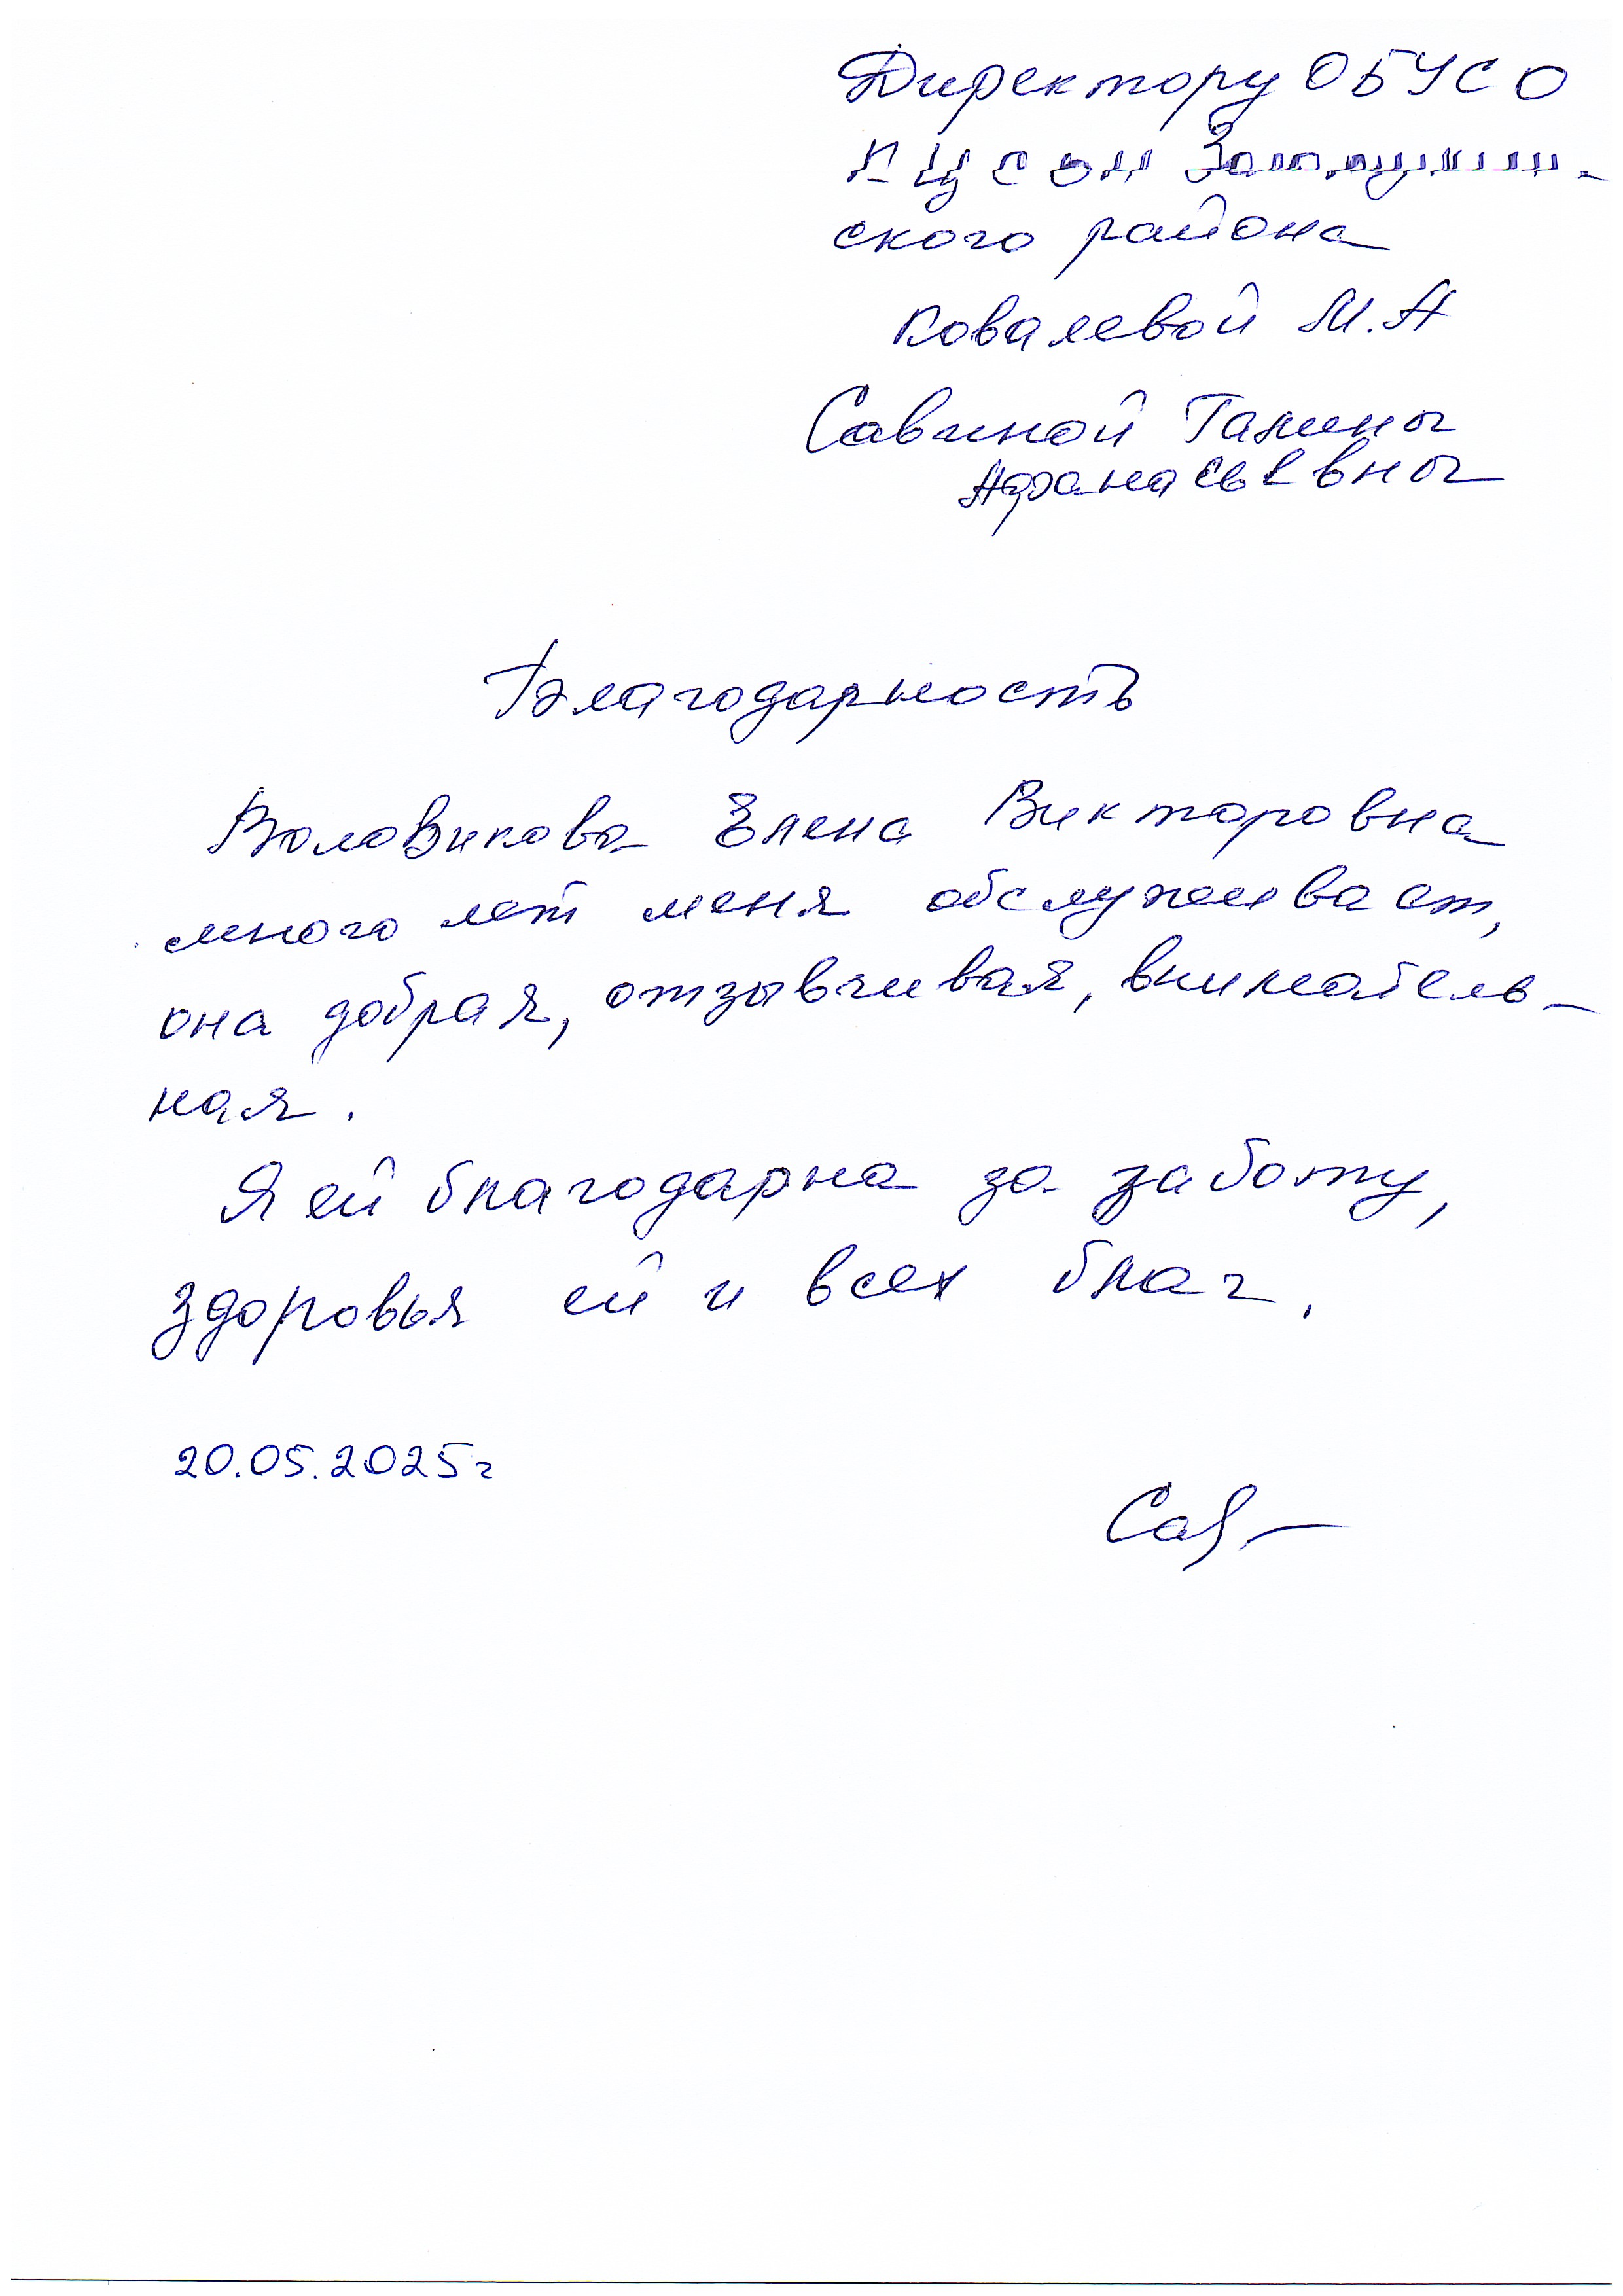 Директору ОБУСО
КЦСОН Золотухин-
ского района
Ковалевой М.А
Савиной Галины
Афанасьевны
Благодарность
Воловикова Елена Викторовна
много лет меня обслуживает,
она добрая, отзывчивая, вниматель-
ная.
Я ей благодарна за заботу,
здоровья ей и всех благ.
20.05.2025г
Сав